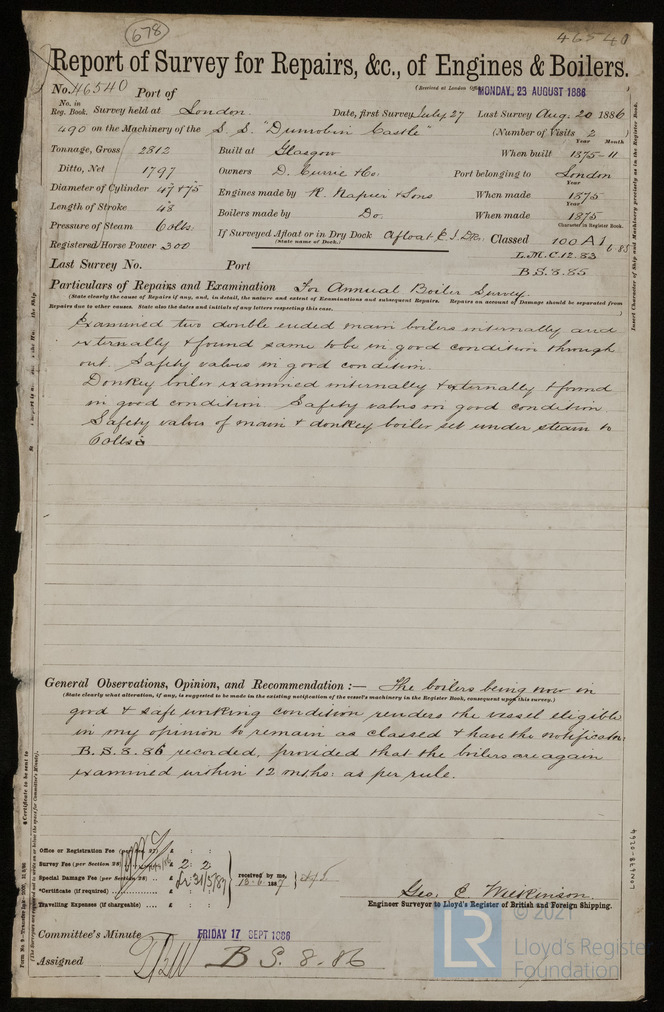 678
46540
Report of Survey for Repairs, &c., of Engines & Boilers.
(Received at London Office MONDAY, 23 AUGUST 1886
No. 46540 Port of
No. in Reg. Book. Survey held at London Date, first Survey July 27 Last Survey Aug. 20 1886
490 on the Machinery of the S. S. "Dunrobin Castle" (Number of Visits 2
Tonnage, Gross 2812 Built at Glasgow When built Year Month 1875-11
Ditto, Net 1797 Owners D. Currie & Co. Port belonging to London
Diameter of Cylinder 47 & 75 Engines made by R. Napier & Sons When made Year 1875
Length of Stroke 48 Boilers made by Do. When made Year 1875
Pressure of Steam 60 lbs. If Surveyed Afloat or in Dry Dock Afloat E. I. Dks. Classed Character in Register Book. 100 A1 6.85
(State name of Dock.)
Registered Horse Power 300 L.M.C. 12.83
Last Survey No. Port B.S. 8.85
Particulars of Repairs and Examination For Annual Boiler Survey.
(State clearly the cause of Repairs if any, and, in detail, the nature and extent of Examinations and subsequent Repairs. Repairs on account of Damage should be separated from
Repairs due to other causes. State also the dates and initials of any letters respecting this case.
Examined two double ended main boilers internally and
externally & found same to be in good condition through
out. Safety valves in good condition.
Donkey boiler examined internally & externally & found
in good condition. Safety valves in good condition
Safety valves of main & donkey boiler set under steam to
60 lbs
General Observations, Opinion, and Recommendation :— The boilers being now in
(State clearly what alteration, if any, is suggested to be made in the existing notification of the vessel's machinery in the Register Book, consequent upon this survey.)
good & safe working condition renders the vessel eligible
in my opinion to remain as classed & have the notification
B.S. 8.86 recorded, provided that the boilers are again
examined within 12 mths: as per rule.
Office or Registration Fee (per Sec. 27) £ : :
Survey Fee (per Section 28) £ 2 : 2 :
Special Damage Fee (per Section 28) £
*Certificate (if required) £ : :
Travelling Expenses (if chargeable) £ : :
received by me,
Geo. C. Wilkinson.
Engineer Surveyor to Lloyd's Register of British and Foreign Shipping.
Committee's Minute FRIDAY 17 SEPT 1886
Assigned B S. 8.86
Insert Character of Ship and Machinery precisely as in the Register Book.
*Certificate to be sent to
LON678-0264
© 2021
LR
Lloyd's Register
Foundation